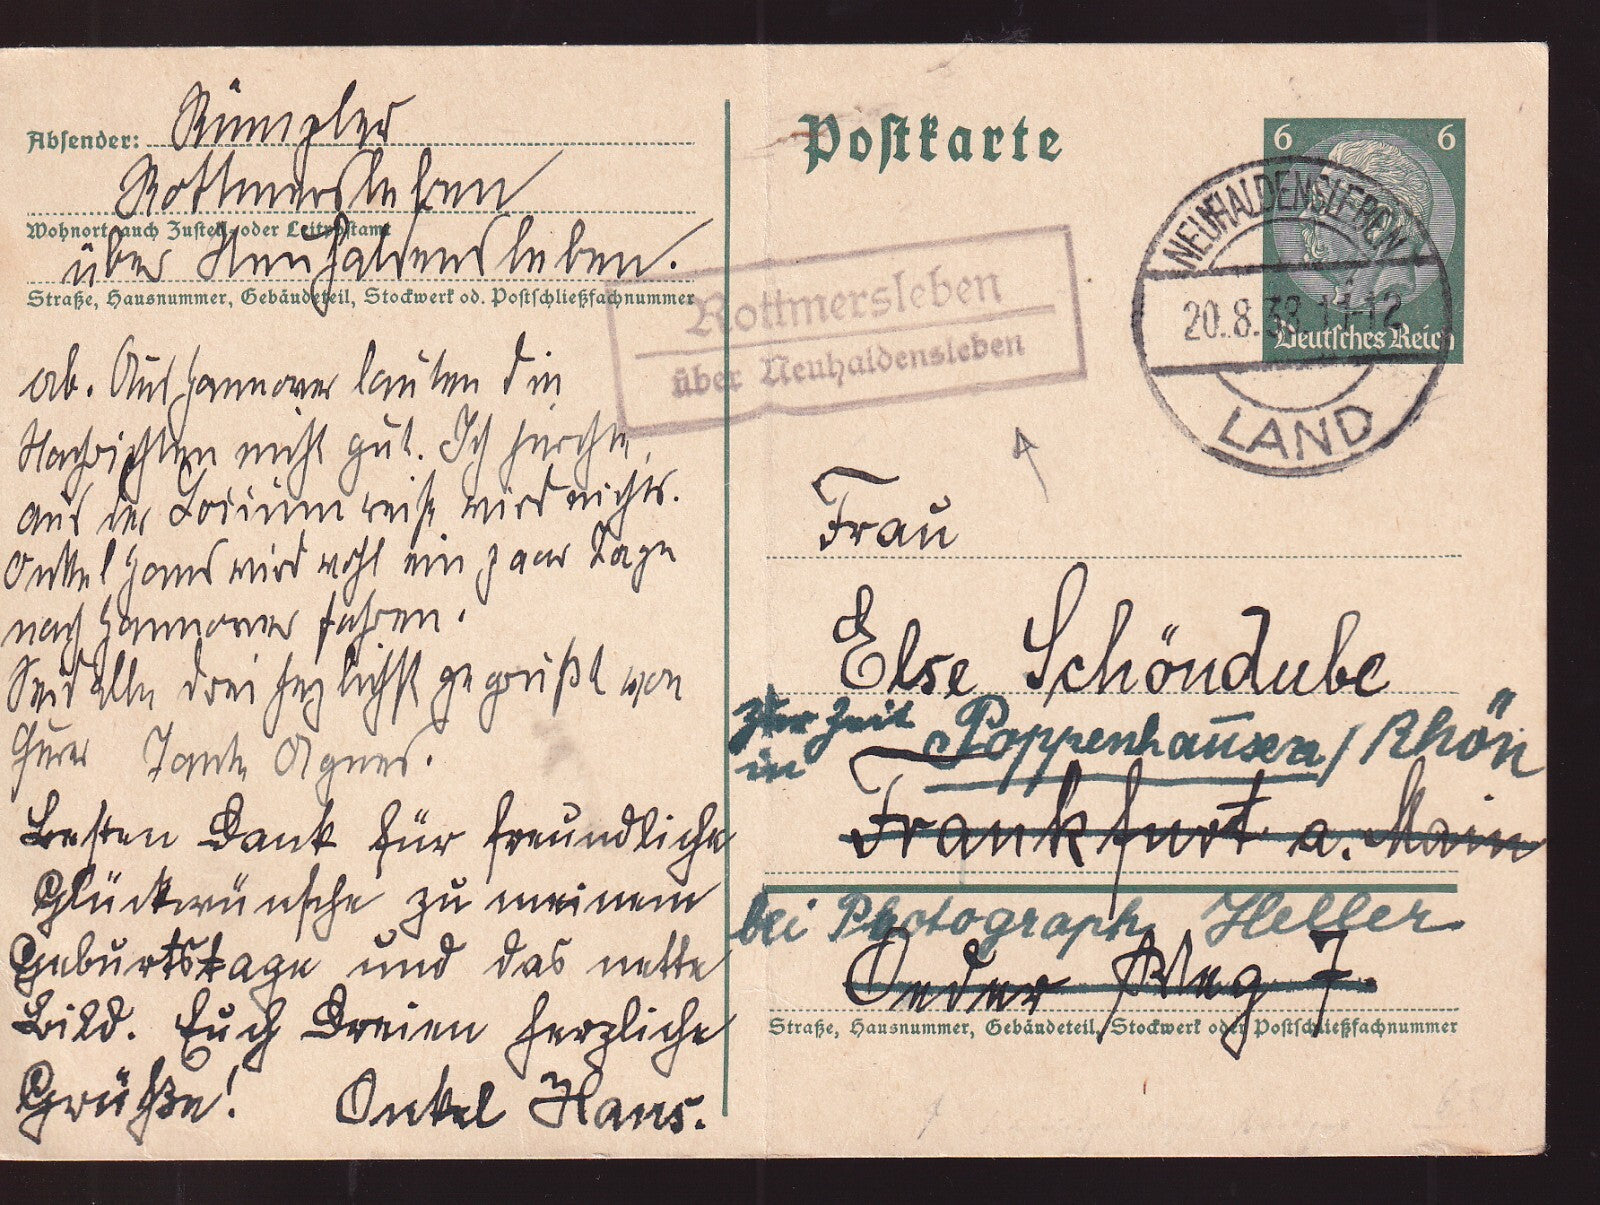 Absender: Rümpler
Rottmersleben
Wohnort, auch Zustell- oder Leitpostamt
über Neuhaldensleben.
Straße, Hausnummer, Gebäudeteil, Stockwerk od. Postschließfachnummer
ab. Aus Hannover lauten die
Nachrichten nicht gut. Ich fürchte,
aus der wird nichts.
Onkel Hans wird wohl ein paar Tage
nach Hannover fahren.
Seid alle drei herzlichst gegrüßt von
Eurer Tante Agnes.
Besten Dank für freundliche
Glückwünsche zu meinem
Geburtstage und das nette
Bild. Euch Dreien herzliche
Grüße! Onkel Hans.
Postkarte
6 6
Deutsches Reich
NEUHALDENSLEBEN
20.8.38.11-12
LAND
Rottmersleben
über Neuhaldensleben
Frau
Else Schöndube
zur Zeit Poppenhausen / Rhön
in
Frankfurt a. Main
bei Photograph Heller
Oeder Weg 7.
Straße, Hausnummer, Gebäudeteil, Stockwerk oder Postschließfachnummer